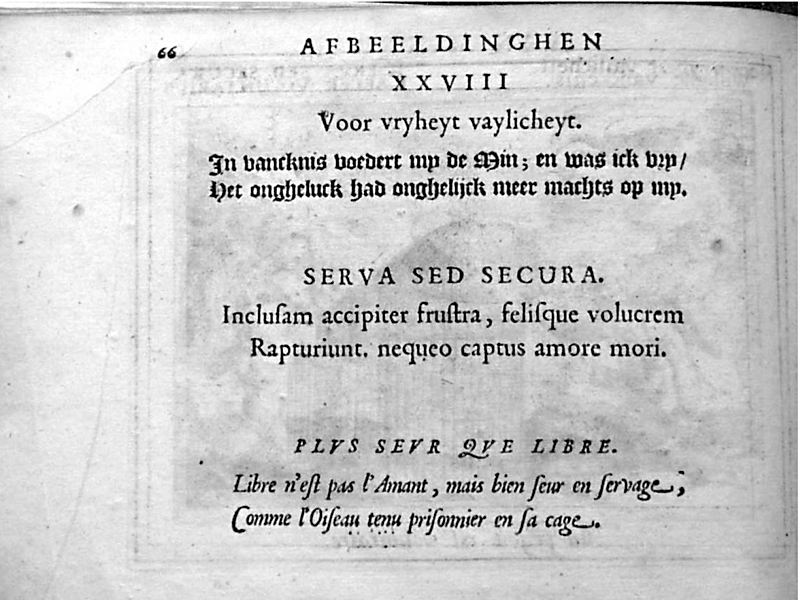 66
AFBEELDINGHEN
XXVIII
Voor vryheyt vaylicheyt.
In vancknis voedert mp de Min; en was ick vrp/
Het ongheluck had onghelijck meer machts op mp.
SERVA SED SECURA.
Incluſam accipiter fruſtra, feliſque volucrem
Rapturiunt. nequeo captus amore mori.
PLVS SEVR QVE LIBRE.
Libre n'eſt pas l'Amant, mais bien ſeur en ſervage;
Comme l'Oiſeau tenu priſonnier en ſa cage.